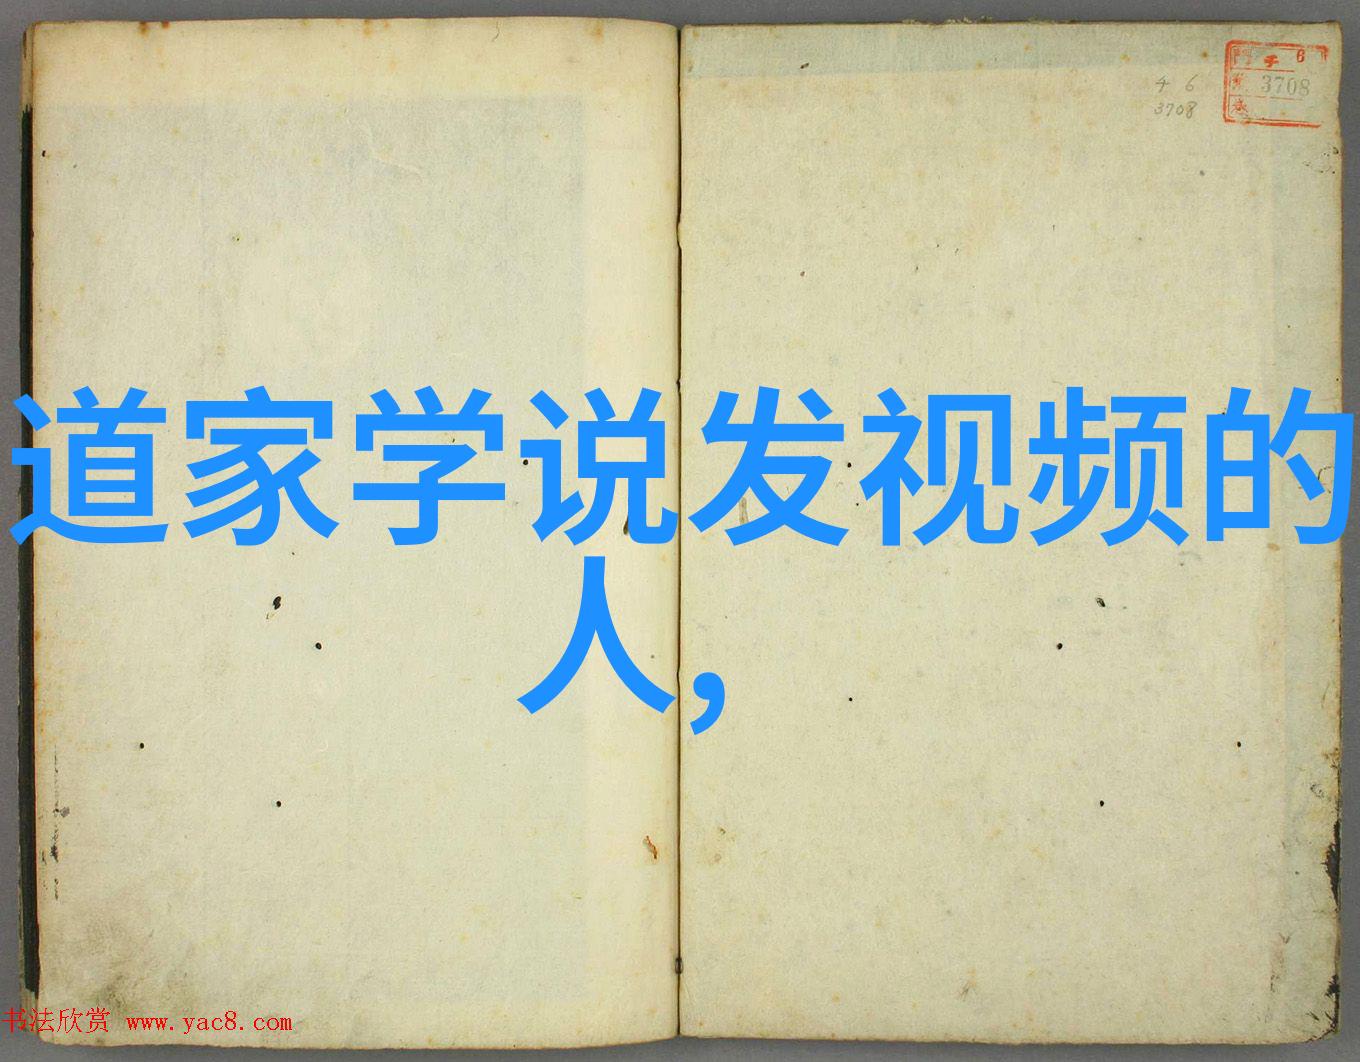 4 6
3708
6
3708
道家学说发视频的
人,
书法欣赏 www.yac8.com